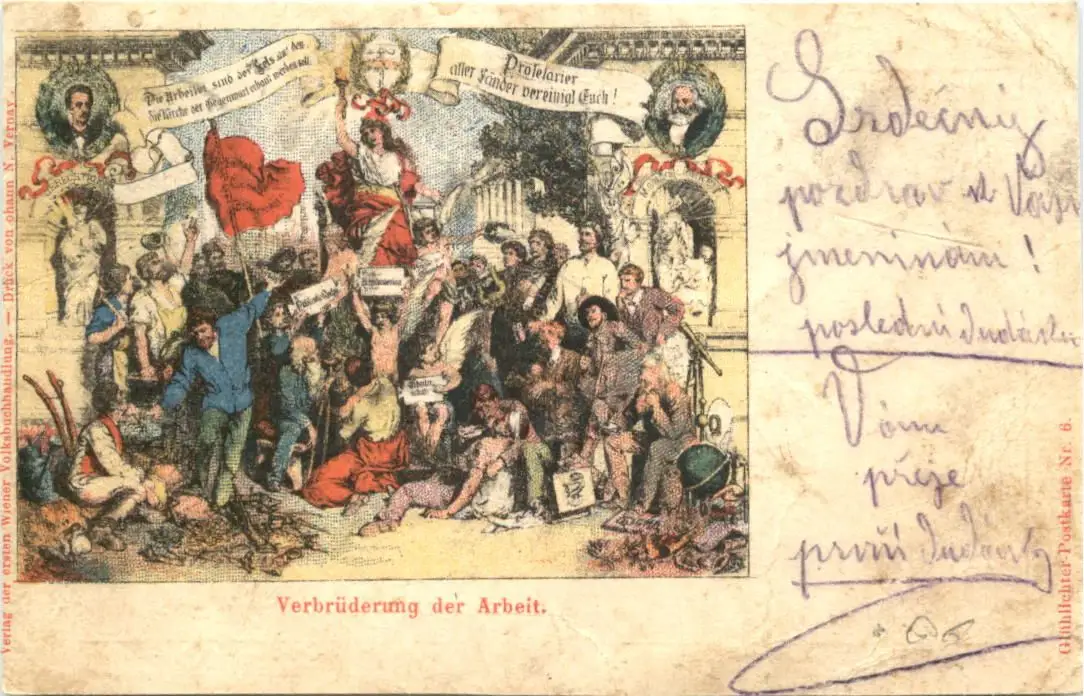 Die Arbeiter sind der Fels auf den
die Kirche der Gegenwart erbaut werden soll.
Proletarier
aller Länder vereinigt Euch!
Verbrüderung der Arbeit.
Verlag der ersten Wiener Volksbuchhandlung. — Druck von Johann N. Vernay
Glühlichter-Postkarte Nr. 6.
Srdečný
pozdrav k Vaši
jmeninám!
poslední
Vám
přeje
první